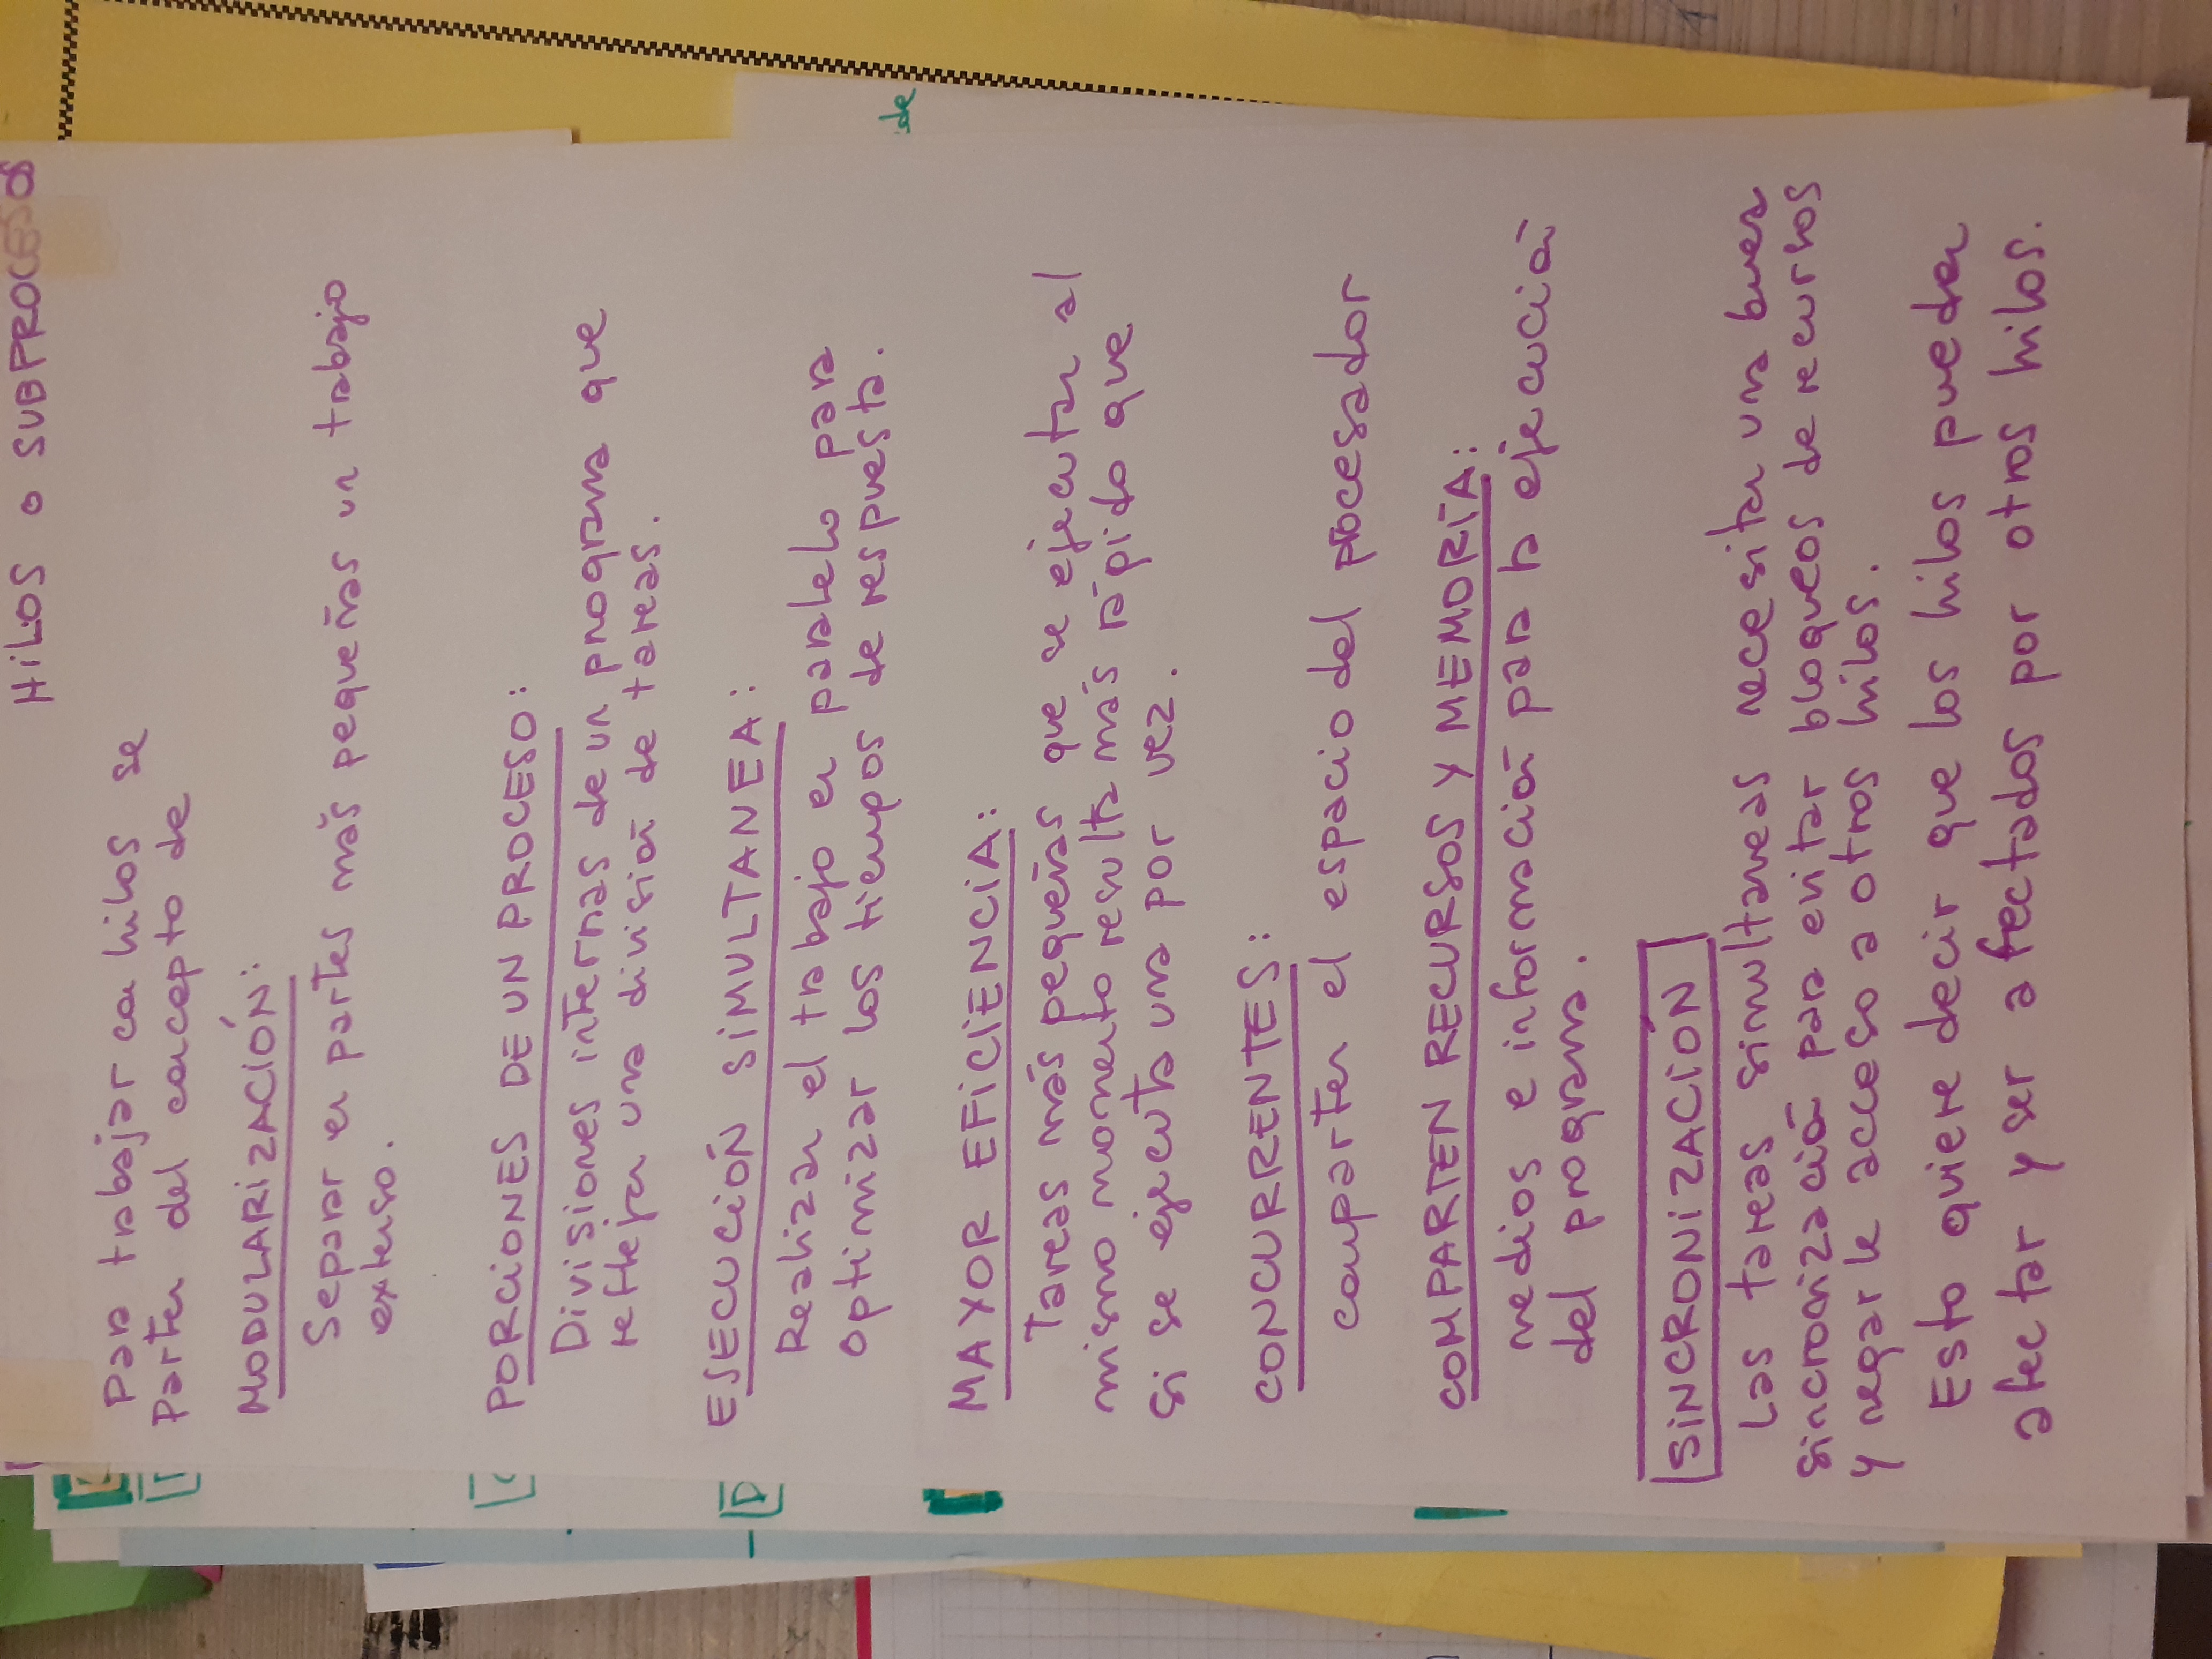 HILOS o SUBPROCESOS
Para trabajar con hilos se
Parten del concepto de
MODULARIZACIÓN:
Separar en partes más pequeñas un trabajo
extenso.
PORCIONES DE UN PROCESO:
Divisiones internas de un programa que
reflejan una división de tareas.
EJECUCIÓN SIMULTANEA:
Realizan el trabajo en paralelo para
optimizar los tiempos de respuesta.
MAYOR EFICIENCIA:
Tareas más pequeñas que se ejecutan al
mismo momento resulta más rápido que
si se ejecuta una por vez.
CONCURRENTES:
comparten el espacio del procesador
COMPARTEN RECURSOS Y MEMORÍA:
medios e información para la ejecución
del programa.
SINCRONIZACIÓN
Las tareas simultaneas necesitan una buena
sincronización para evitar bloqueos de recursos
y negarle acceso a otros hilos.
Esto quiere decir que los hilos pueden
afectar y ser afectados por otros hilos.
de
D